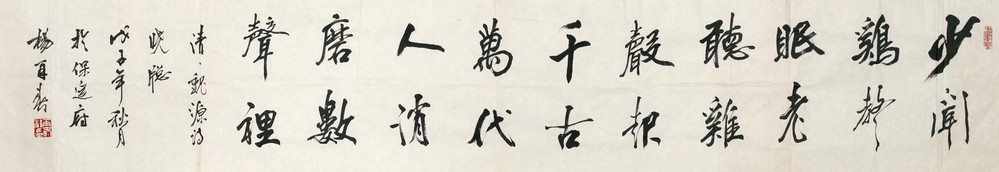 少聞
鷄聲
眠老
聽雞
聲起
千古
萬代
人消
磨數
聲裡
清·魏源詩
晓牕
戊子年秋月
於保定府
楊再春